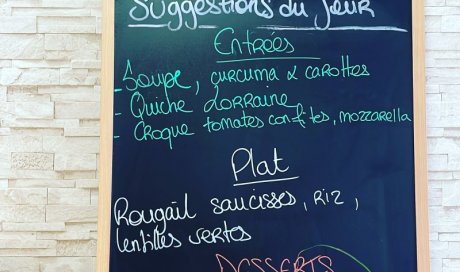 Suggestions du jour
Entrées
- Soupe, curcuma & carottes
- Quiche Lorraine
- Croque tomates confites, mozzarella
Plat
Rougail saucisses, riz,
lentilles vertes
DESSERTS